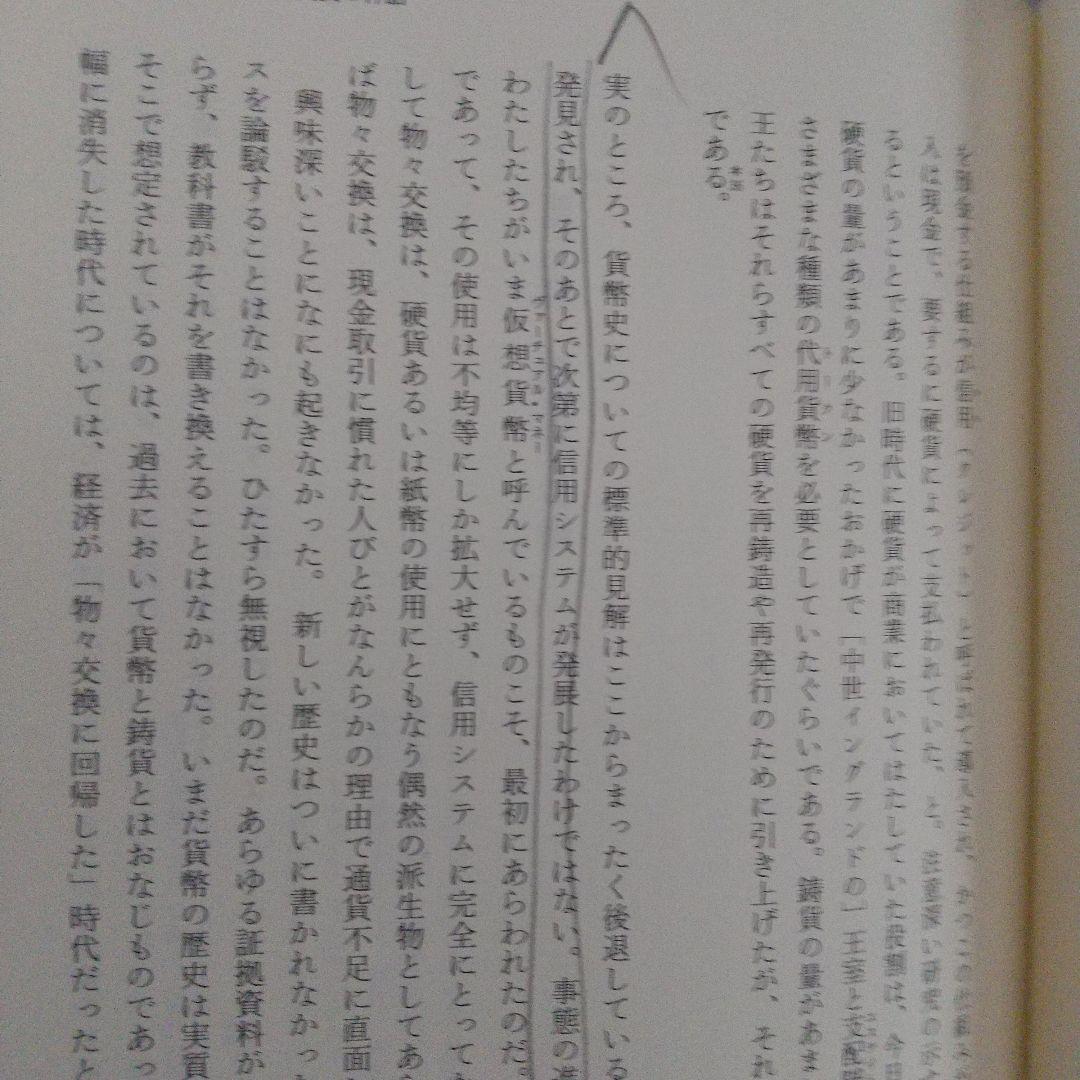 人は現金で、要するに硬貨によって支払われていた、と。
るということである。旧時代に硬貨が商業においてはたしていた役割は、今日
硬貨の量があまりに少なかったおかげで「中世イングランドの」王室と支配階
さまざまな種類の代用貨幣を必要としていたぐらいである。鋳貨の量があま
王たちはそれらすべての硬貨を再鋳造や再発行のために引き上げたが、それ
である。
実のところ、貨幣史についての標準的見解はここからまったく後退している
発見され、そのあとで次第に信用システムが発展したわけではない。事態の進
わたしたちがいま仮想貨幣と呼んでいるものこそ、最初にあらわれたのだ。
ヴァーチュアル・マネー
であって、その使用は不均等にしか拡大せず、信用システムに完全にとって
して物々交換は、硬貨あるいは紙幣の使用にともなう偶然の派生物としてあ
ば物々交換は、現金取引に慣れた人びとがなんらかの理由で通貨不足に直面
興味深いことになにも起きなかった。新しい歴史はついに書かれなかっ
スを論駁することはなかった。ひたすら無視したのだ。あらゆる証拠資料が
らず、教科書がそれを書き換えることはなかった。いまだ貨幣の歴史は実質
そこで想定されているのは、過去において貨幣と鋳貨とはおなじものであっ
幅に消失した時代については、経済が「物々交換に回帰した」時代だったと